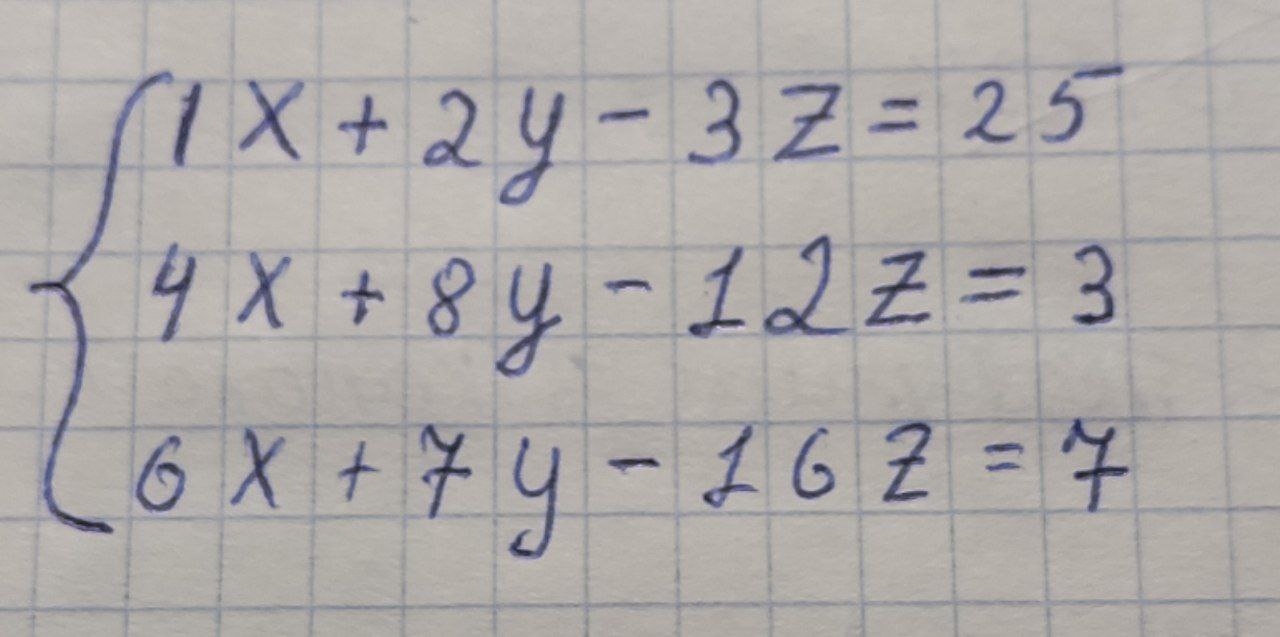 1x + 2y - 3z = 25
4x + 8y - 12z = 3
6x + 7y - 16z = 7